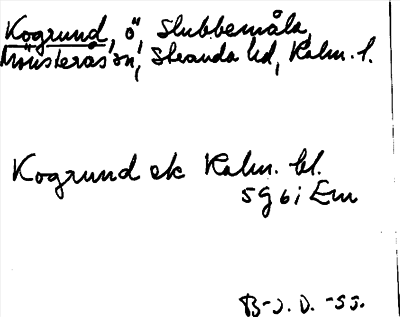 Kogrund, ö, Slubbemåla,
Mönsterås sn, Stranda hd, Kalm. l.
Kogrund ek Kalm. bl.
5g 6i Em
B-J. D. -55.